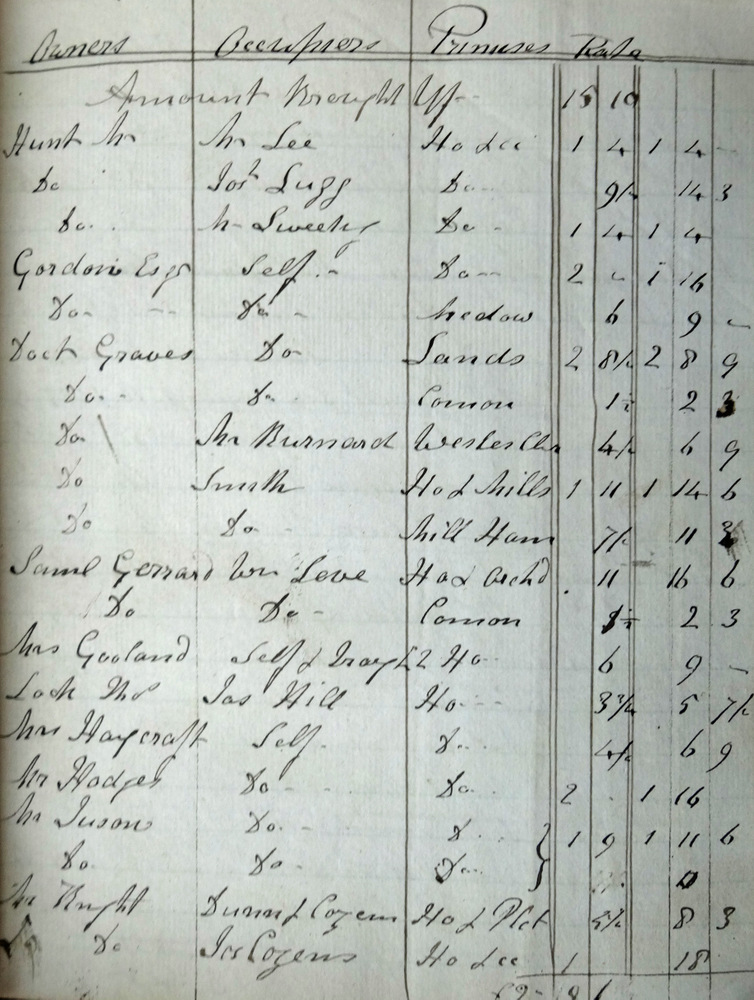 Owners Occupiers Primuses Rate
Amount Brought Up 15 10
Hunt Mr Mr Lee Ho &cc 1 4 1 4 -
Do Jos Lugg Do 9½ 14 3
Do Mr Sweeting Do 1 4 1 4
Gordon Esqr Self Do 2 - 1 16
Do Do Medow 6 9 -
Doct Graves Do Lands 2 8½ 2 8 9
Do Do Comon 1½ 2 3
Do Mr Burnard 4½ 6 9
Do Smith Ho & Mills 1 11 1 14 6
Do Do Mill Ham 7½ 11 3
Saml Gerrard Wm Leve Ho & Orchd 11 16 6
Do Do Comon 1½ 2 3
Mrs Gooland Self & 2 Ho 6 9 -
Lock Thos Jas Hill Ho 3¾ 5 7½
Mrs Haycraft Self Do 4½ 6 9
Mr Hodges Do Do 2 1 16
Mr Juson Do D 1 9 1 11 6
Do Do Do
Mr Knight Dunn & Cozens Ho & Plot 5½ 8 3
Do Jas Cozens Ho &cc 1 18